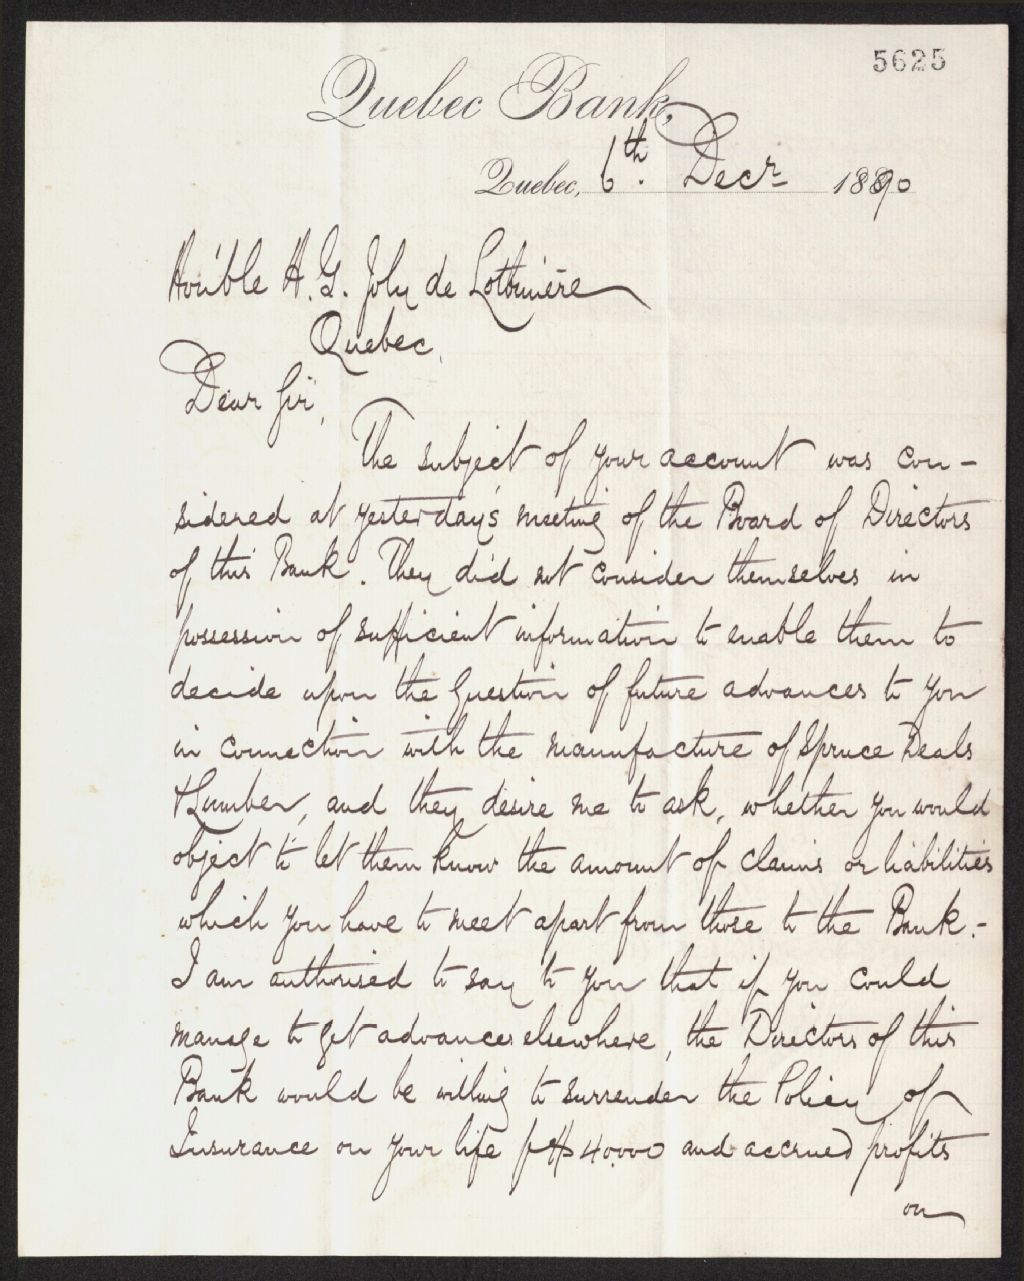 5625
Quebec Bank,
Quebec, 6th. Decr 1890
Hon'ble H. G. Joly de Lotbinière
Quebec.
Dear Sir,
The subject of your account was con-
sidered at yesterday's meeting of the Board of Directors
of this Bank. They did not consider themselves in
possession of sufficient information to enable them to
decide upon the Question of future advances to you
in connection with the manufacture of Spruce Deals
& Lumber, and they desire me to ask, whether you would
object to let them know the amount of claims or liabilities
which you have to meet apart from those to the Bank.-
I am authorised to say to you that if you could
manage to get advances elsewhere, the Directors of this
Bank would be willing to surrender the Policy of
Insurance on your life for $40.000 and accrued profits
on